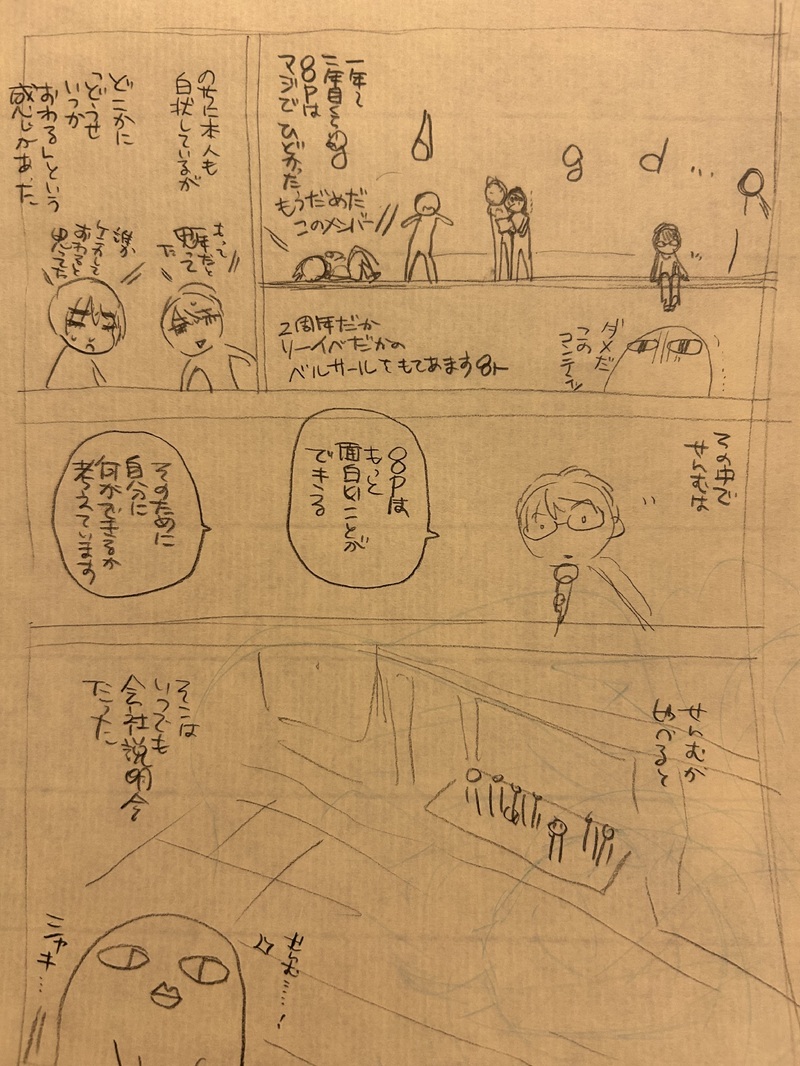 一年〜
二年目くらいの
8Pは
マジで ひどかった
もうだめだ
このメンバー
g
d
g
d
のちに本人も
白状しているが
どこかに
「どうせ
いつか
おわる」という
感じがあった
もって
半年だと
思って
た
誰か
ケンカして
おわると
思ってた
2周年だか
リーイベだかの
ベルサールをもてあます8ト
ダメだ
この
コンテンツ
その中で
せらむは
8Pは
もっと
面白いことが
できる
そのために
自分に
何ができるか
考えています
せらむが
のべると
そこは
いつでも
会社説明会
だった
せらむ……!
ニャキ…